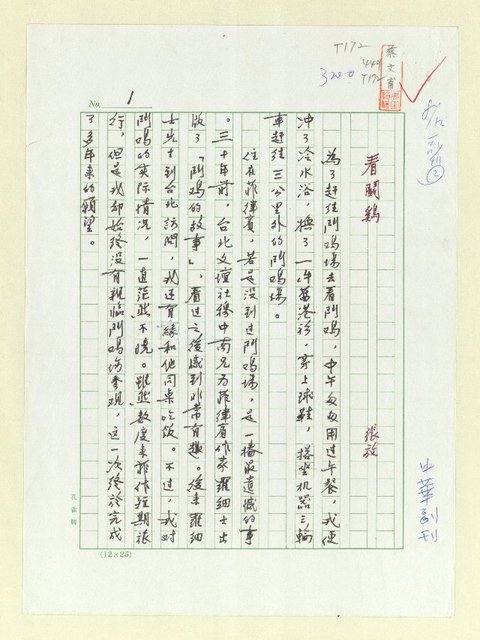 T172
449
T172
3200
蔡文甫
No. 1
看鬪鷄
張放
中華副刊
為了赶往鬥鸡場去看鬥鸡，中午匆匆用过午餐，我便
冲了冷水浴，換了一件香港衫，穿上球鞋，搭坐机器三輪
車赶往三公里外的鬥鸡場。
住在菲律賓，若是没到过鬥鸡場，是一樁最遺憾的事
。三十年前，台北文壇社穆中南兄为菲律賓作家羅細士出
版了「鬥鸡的故事」，看过之後感到非常有趣。後來羅細
士先生到台北訪問，我还有緣和他同桌吃飯。不过，我对
鬥鸡的实际情况，一直茫然不曉。雖然数度來菲作短期旅
行，但是我却始终没有親临鬥鸡場参观，这一次终於完成
了多年來的願望。
孔雀牌
(12×25)